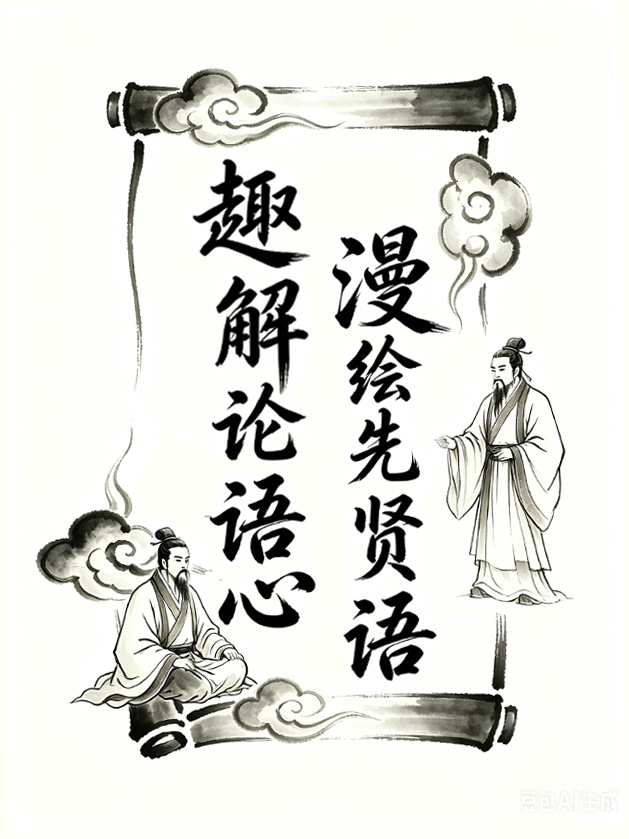 漫绘先贤语
趣解论语心
豆包AI生成